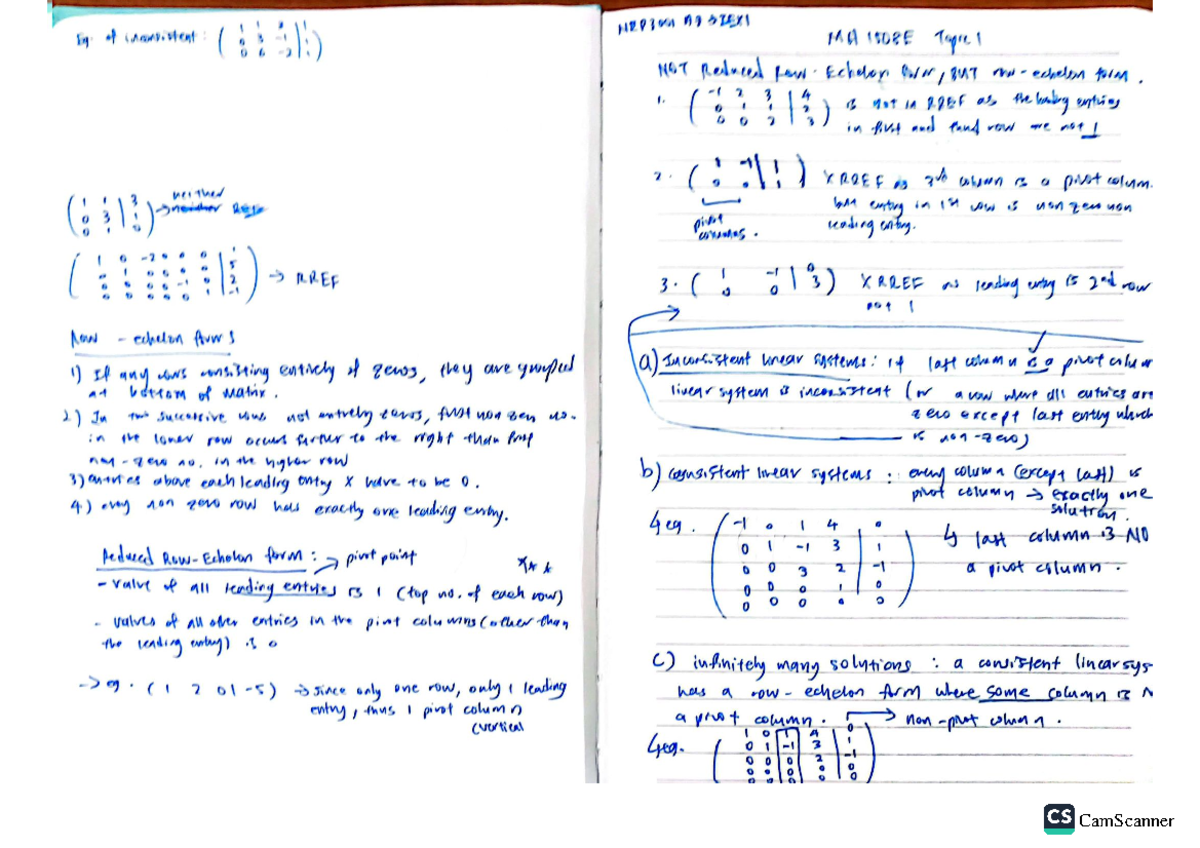 Eg. of inconsistent :
neither
→ RREF
Row - echelon forms
1) If any rows consisting entirely of zeros, they are grouped
at bottom of matrix.
2) In two successive rows not entirely zeros, first non zero no.
in the lower row occurs farther to the right than first
non-zero no. in the higher row
3) entries above each leading entry X have to be 0.
4) every non zero row has exactly one leading entry.
Reduced Row-Echelon form : → pivot point
- value of all leading entries is 1 (top no. of each row)
- values of all other entries in the pivot columns (other than
the leading entry) is 0
→ eg. ( 1 2 0 | -5 ) → since only one row, only 1 leading
entry, thus 1 pivot column
(vertical
MA 1508E Topic 1
NOT Reduced Row-Echelon form, BUT row-echelon form.
1. ( -1 2 3 | 4
0 1 1 | 2
0 0 2 | 3 ) is not in RREF as the leading entries
in first and third row are not 1
2. X RREF as 3rd column is a pivot column.
but entry in 1st row is non zero non
leading entry.
pivot
columns.
3. ( 1 -1 | 0
0 0 | 3 ) X RREF as leading entry is 2nd row
not 1
a) Inconsistent linear systems : if last column is a pivot column
linear system is inconsistent (or a row where all entries are
zero except last entry which
is non-zero)
b) consistent linear systems : every column (except last) is
pivot column → exactly one
solution.
↳ eg. ( -1 0 1 4 | 0
0 1 -1 3 | 1
0 0 3 2 | -1
0 0 0 1 | 0
0 0 0 0 | 0 )
↳ last column is NO
a pivot column.
c) infinitely many solutions : a consistent linear sys
has a row-echelon form where some column is N
a pivot column. → non-pivot column.
↳ eg.
CS CamScanner